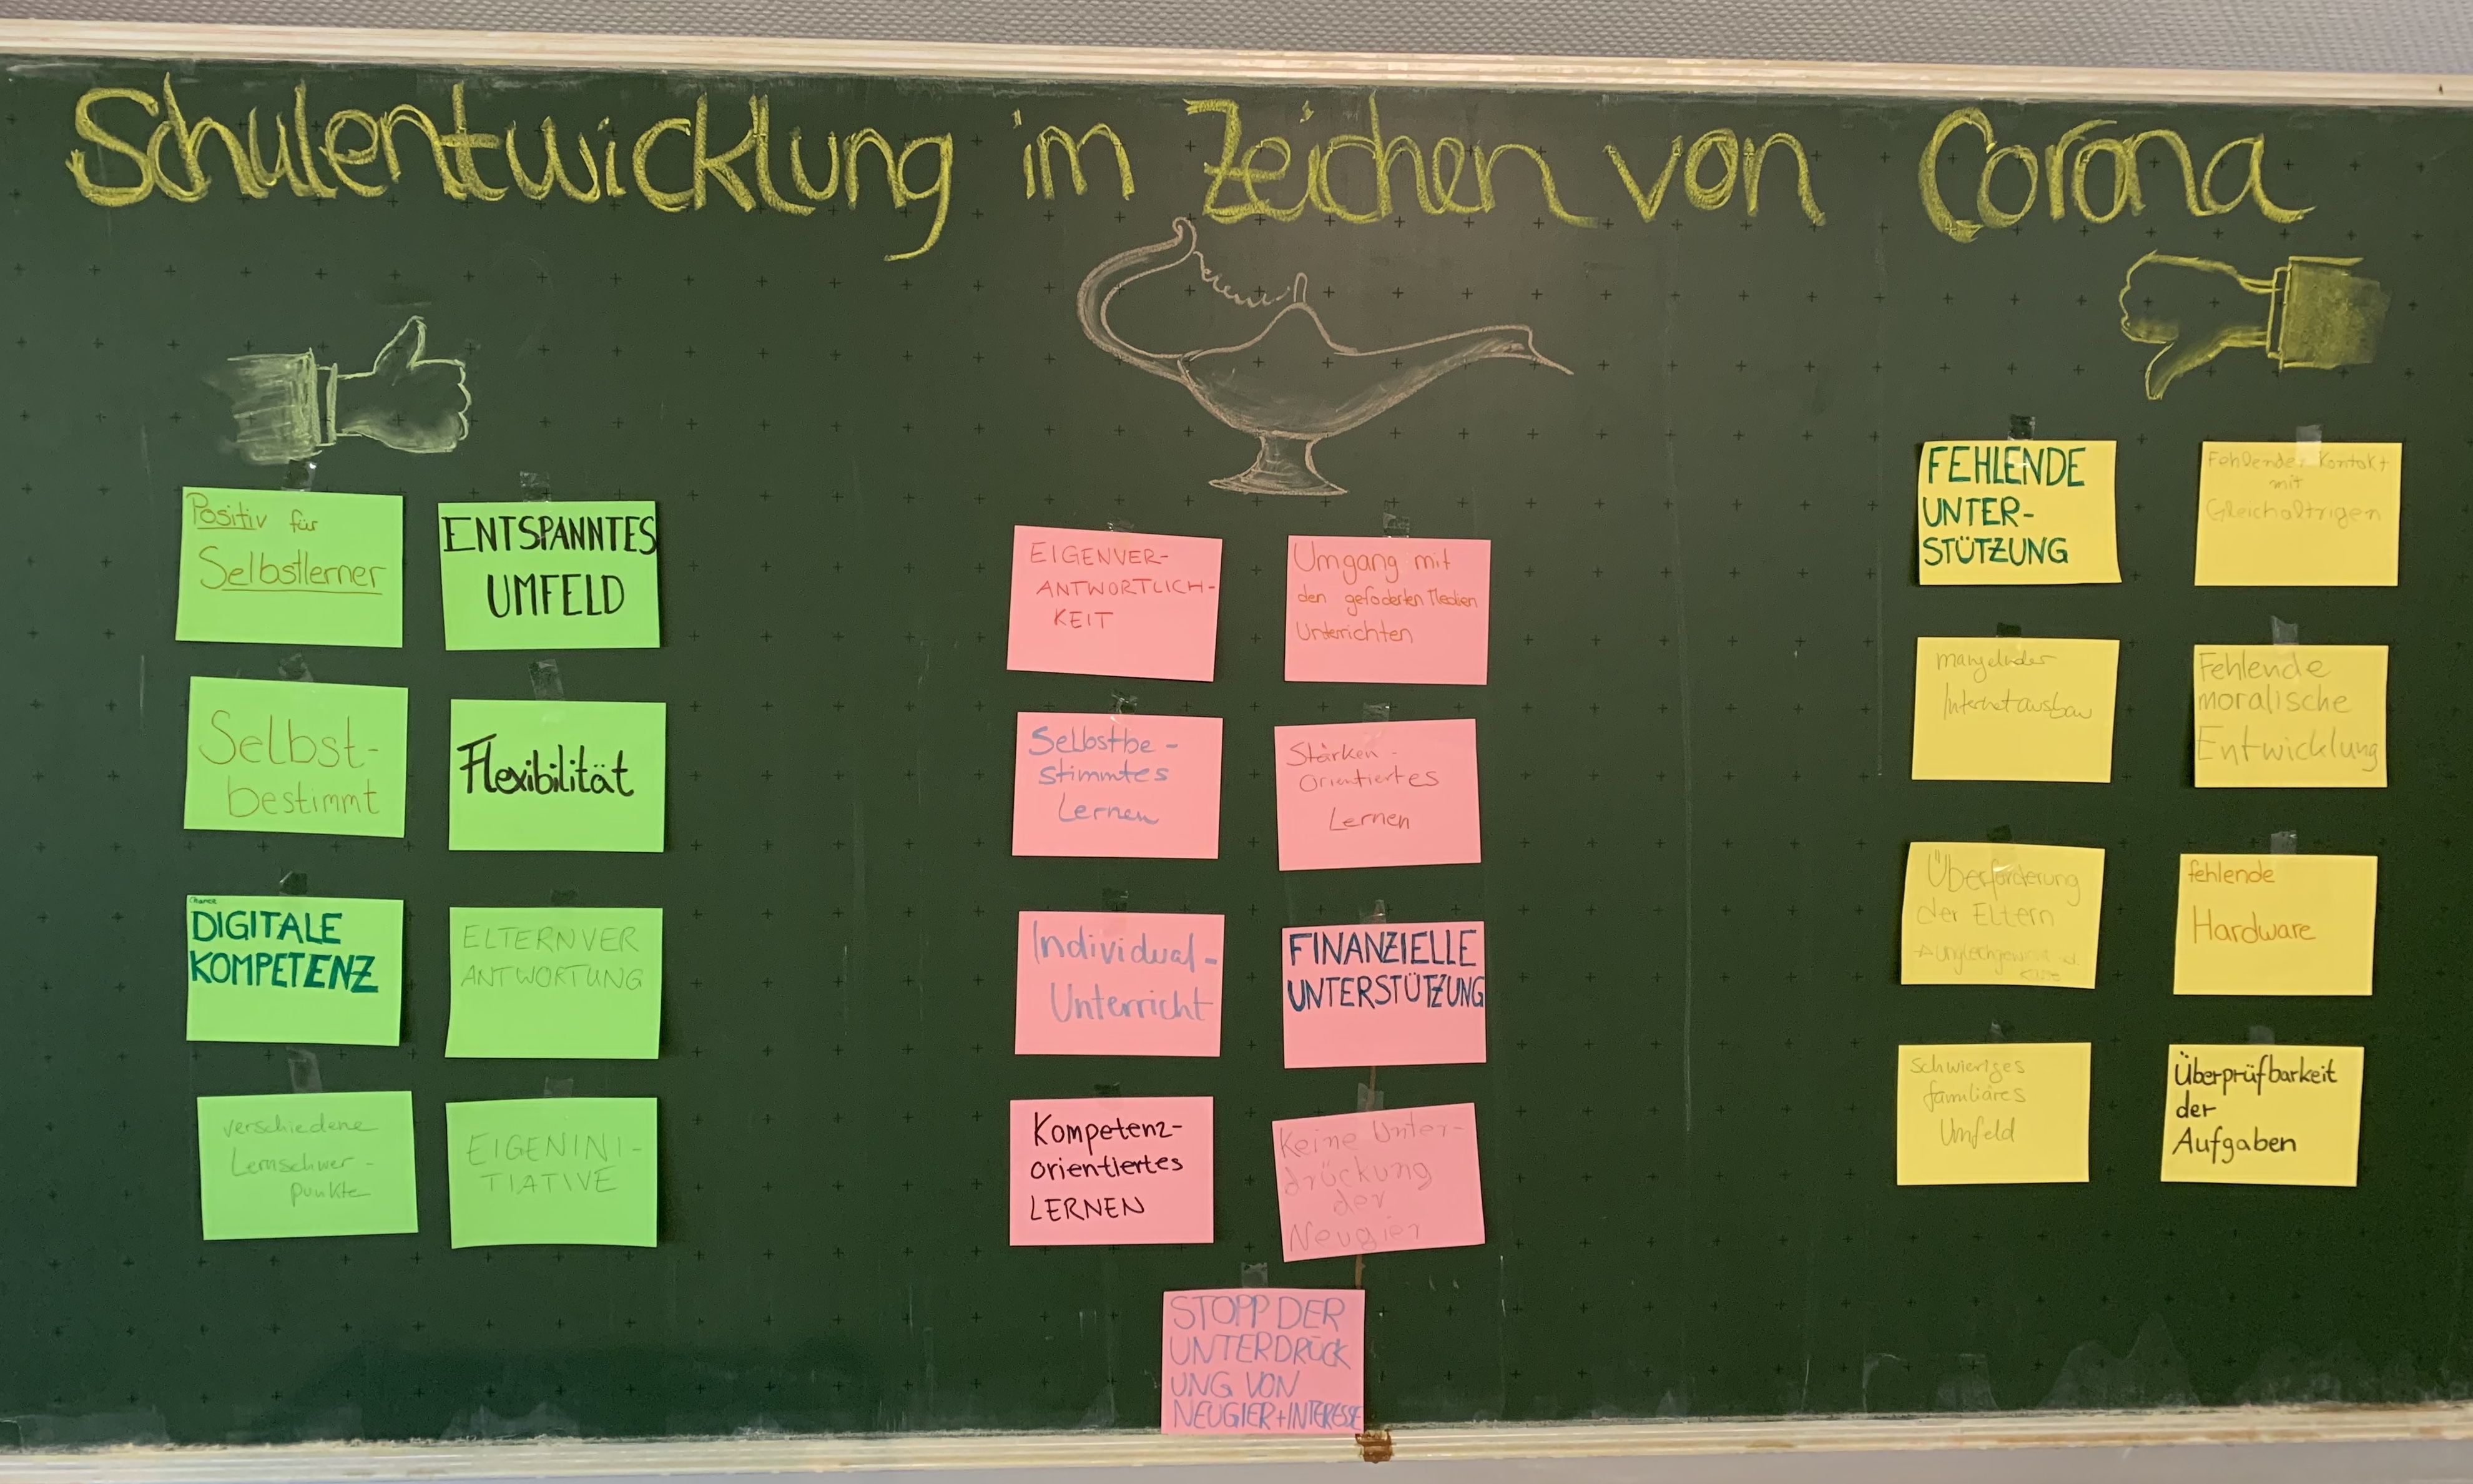 Schulentwicklung im Zeichen von Corona
Positiv für
Selbstlerner
ENTSPANNTES
UMFELD
Selbst-
bestimmt
Flexibilität
Chance
DIGITALE
KOMPETENZ
ELTERNVER
ANTWORTUNG
verschiedene
Lernschwer-
punkte
EIGENINI-
TIATIVE
EIGENVER-
ANTWORTLICH-
KEIT
Umgang mit
den gefoderten Medien
Unterrichten
Selbstbe-
stimmtes
Lernen
Stärken-
Orientiertes
Lernen
Individual-
Unterricht
FINANZIELLE
UNTERSTÜTZUNG
Kompetenz-
orientiertes
LERNEN
Keine Unter-
drückung
der
Neugier
STOPP DER
UNTERDRÜCK
UNG VON
NEUGIER+INTERESSE
FEHLENDE
UNTER-
STÜTZUNG
Fehlender Kontakt
mit
Gleichaltrigen
mangelnder
Internetausbau
Fehlende
moralische
Entwicklung
Überforderung
der Eltern
fehlende
Hardware
Schwieriges
familiäres
Umfeld
Überprüfbarkeit
der
Aufgaben